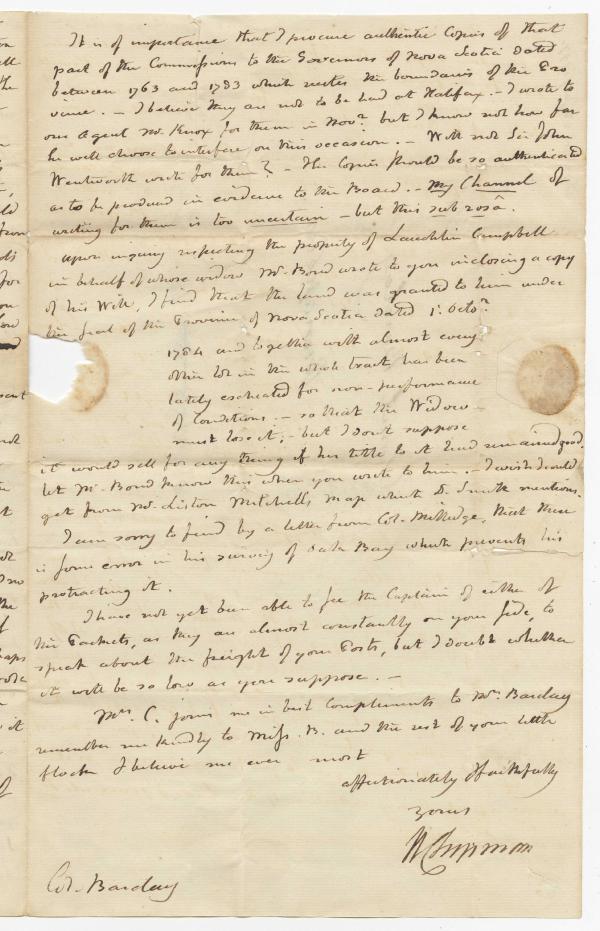 It is of importance that I procure authentic Copies of that
part of the Commissions to the Governors of Nova Scotia dated
between 1763 and 1783 which recites the boundaries of the Pro
vince. – I believe they are not to be had at Halifax. – I wrote to
our Agent Mr. Knox for them in Novr. but I know not how far
he will choose to interfere on this occasion. – Will not Sir John
Wentworth write for them? – The Copies should be so authenticated
as to be produced in evidence to the Board. – My Channel of
writing for them is too uncertain – but this sub rosâ.
Upon inquiry respecting the property of Lauchlin Campbell
in behalf of whose widow Mr. Bond wrote to you inclosing a copy
of his Will, I find that the land was granted to him under
the seal of the Province of Nova Scotia dated 1st. Octor.
1784 and together with almost every
other lot in the whole tract has been
lately escheated for non-performance
of conditions. – so that the Widow
must lose it, – but I dont suppose
it would sell for any thing if her title to it had remained good
let Mr. Bond know this when you write to him. – I wish I could
get from Mr. Liston Mitchell's map which D. Smith mentions.
I am sorry to find by a letter from Col. Milledge, that there
is some error in his survey of Bay which prevents his
protracting it.
I have not yet been able to see the Captain of either of
the Packets, as they are almost constantly on your side, to
speak about the freight of your Posts, but I doubt whether
it will be so low as you suppose. –
Mrs. C. joins me in best Compliments to Mrs. Barclay
remember me kindly to Miss B. and the rest of your little
flock & believe me ever most
affectionately & faithfully
yours
W Chipman
Col. Barclay